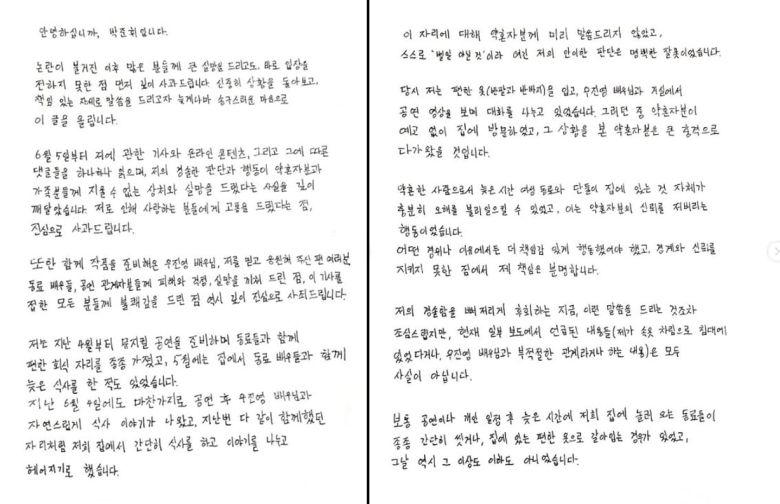 안녕하십니까, 박준휘입니다.
논란이 불거진 이후 많은 분들께 큰 실망을 드리고도, 바로 입장을
전하지 못한 점 먼저 깊이 사과드립니다. 신중히 상황을 돌아보고,
책임 있는 자세로 말씀을 드리고자 늦게나마 송구스러운 마음으로
이 글을 올립니다.
6월 5일부터 저에 관한 기사와 온라인 콘텐츠, 그리고 그에 따른
댓글들을 하나하나 읽으며, 저의 경솔한 판단과 행동이 약혼자분과
가족분들께 지울 수 없는 상처와 실망을 드렸다는 사실을 깊이
깨달았습니다. 저로 인해 사랑하는 분들에게 고통을 드렸다는 점,
진심으로 사과드립니다.
또한 함께 작품을 준비해온 우진영 배우님, 저를 믿고 응원해 주신 팬 여러분,
동료 배우들, 공연 관계자분들께 피해와 걱정, 실망을 끼쳐 드린 점, 이 기사를
접한 모든 분들께 불쾌감을 드린 점 역시 깊이 진심으로 사죄드립니다.
저는 지난 4월부터 뮤지컬 공연을 준비하며 동료들과 함께
편한 회식 자리를 종종 가졌고, 5월에는 집에서 동료 배우들과 함께
늦은 식사를 한 적도 있었습니다.
지난 6월 4일에도 마찬가지로 공연 후 우진영 배우님과
자연스럽게 식사 이야기가 나왔고, 지난번 다 같이 함께했던
자리처럼 저희 집에서 간단히 식사를 하고 이야기를 나누고
헤어지기로 했습니다.
이 자리에 대해 약혼자분께 미리 말씀드리지 않았고,
스스로 '별일 아닐 것'이라 여긴 저의 안이한 판단은 명백한 잘못이었습니다.
당시 저는 편한 옷(반팔과 반바지)을 입고, 우진영 배우님과 거실에서
공연 영상을 보며 대화를 나누고 있었습니다. 그러던 중 약혼자분이
예고 없이 집에 방문하였고, 그 상황을 본 약혼자분은 큰 충격으로
다가왔을 것입니다.
약혼한 사람으로서 늦은 시간 여성 동료와 단둘이 집에 있는 것 자체가
충분히 오해를 불러일으킬 수 있었고, 이는 약혼자분의 신뢰를 저버리는
행동이었습니다.
어떤 경위나 이유에서든 더 책임감 있게 행동했어야 했고, 경계와 신뢰를
지키지 못한 점에서 제 책임은 분명합니다.
저의 경솔함을 뼈저리게 후회하는 지금, 이런 말씀을 드리는 것조차
조심스럽지만, 현재 일부 보도에서 언급된 내용들(제가 속옷 차림으로 침대에
있었다거나, 우진영 배우님과 부적절한 관계라거나 하는 내용)은 모두
사실이 아닙니다.
보통 공연이나 개인 일정 후 늦은 시간에 저희 집에 놀러 오는 동료들이
종종 간단히 씻거나, 집에 있는 편한 옷으로 갈아입는 경우가 있었고,
그날 역시 그 이상도 이하도 아니었습니다.